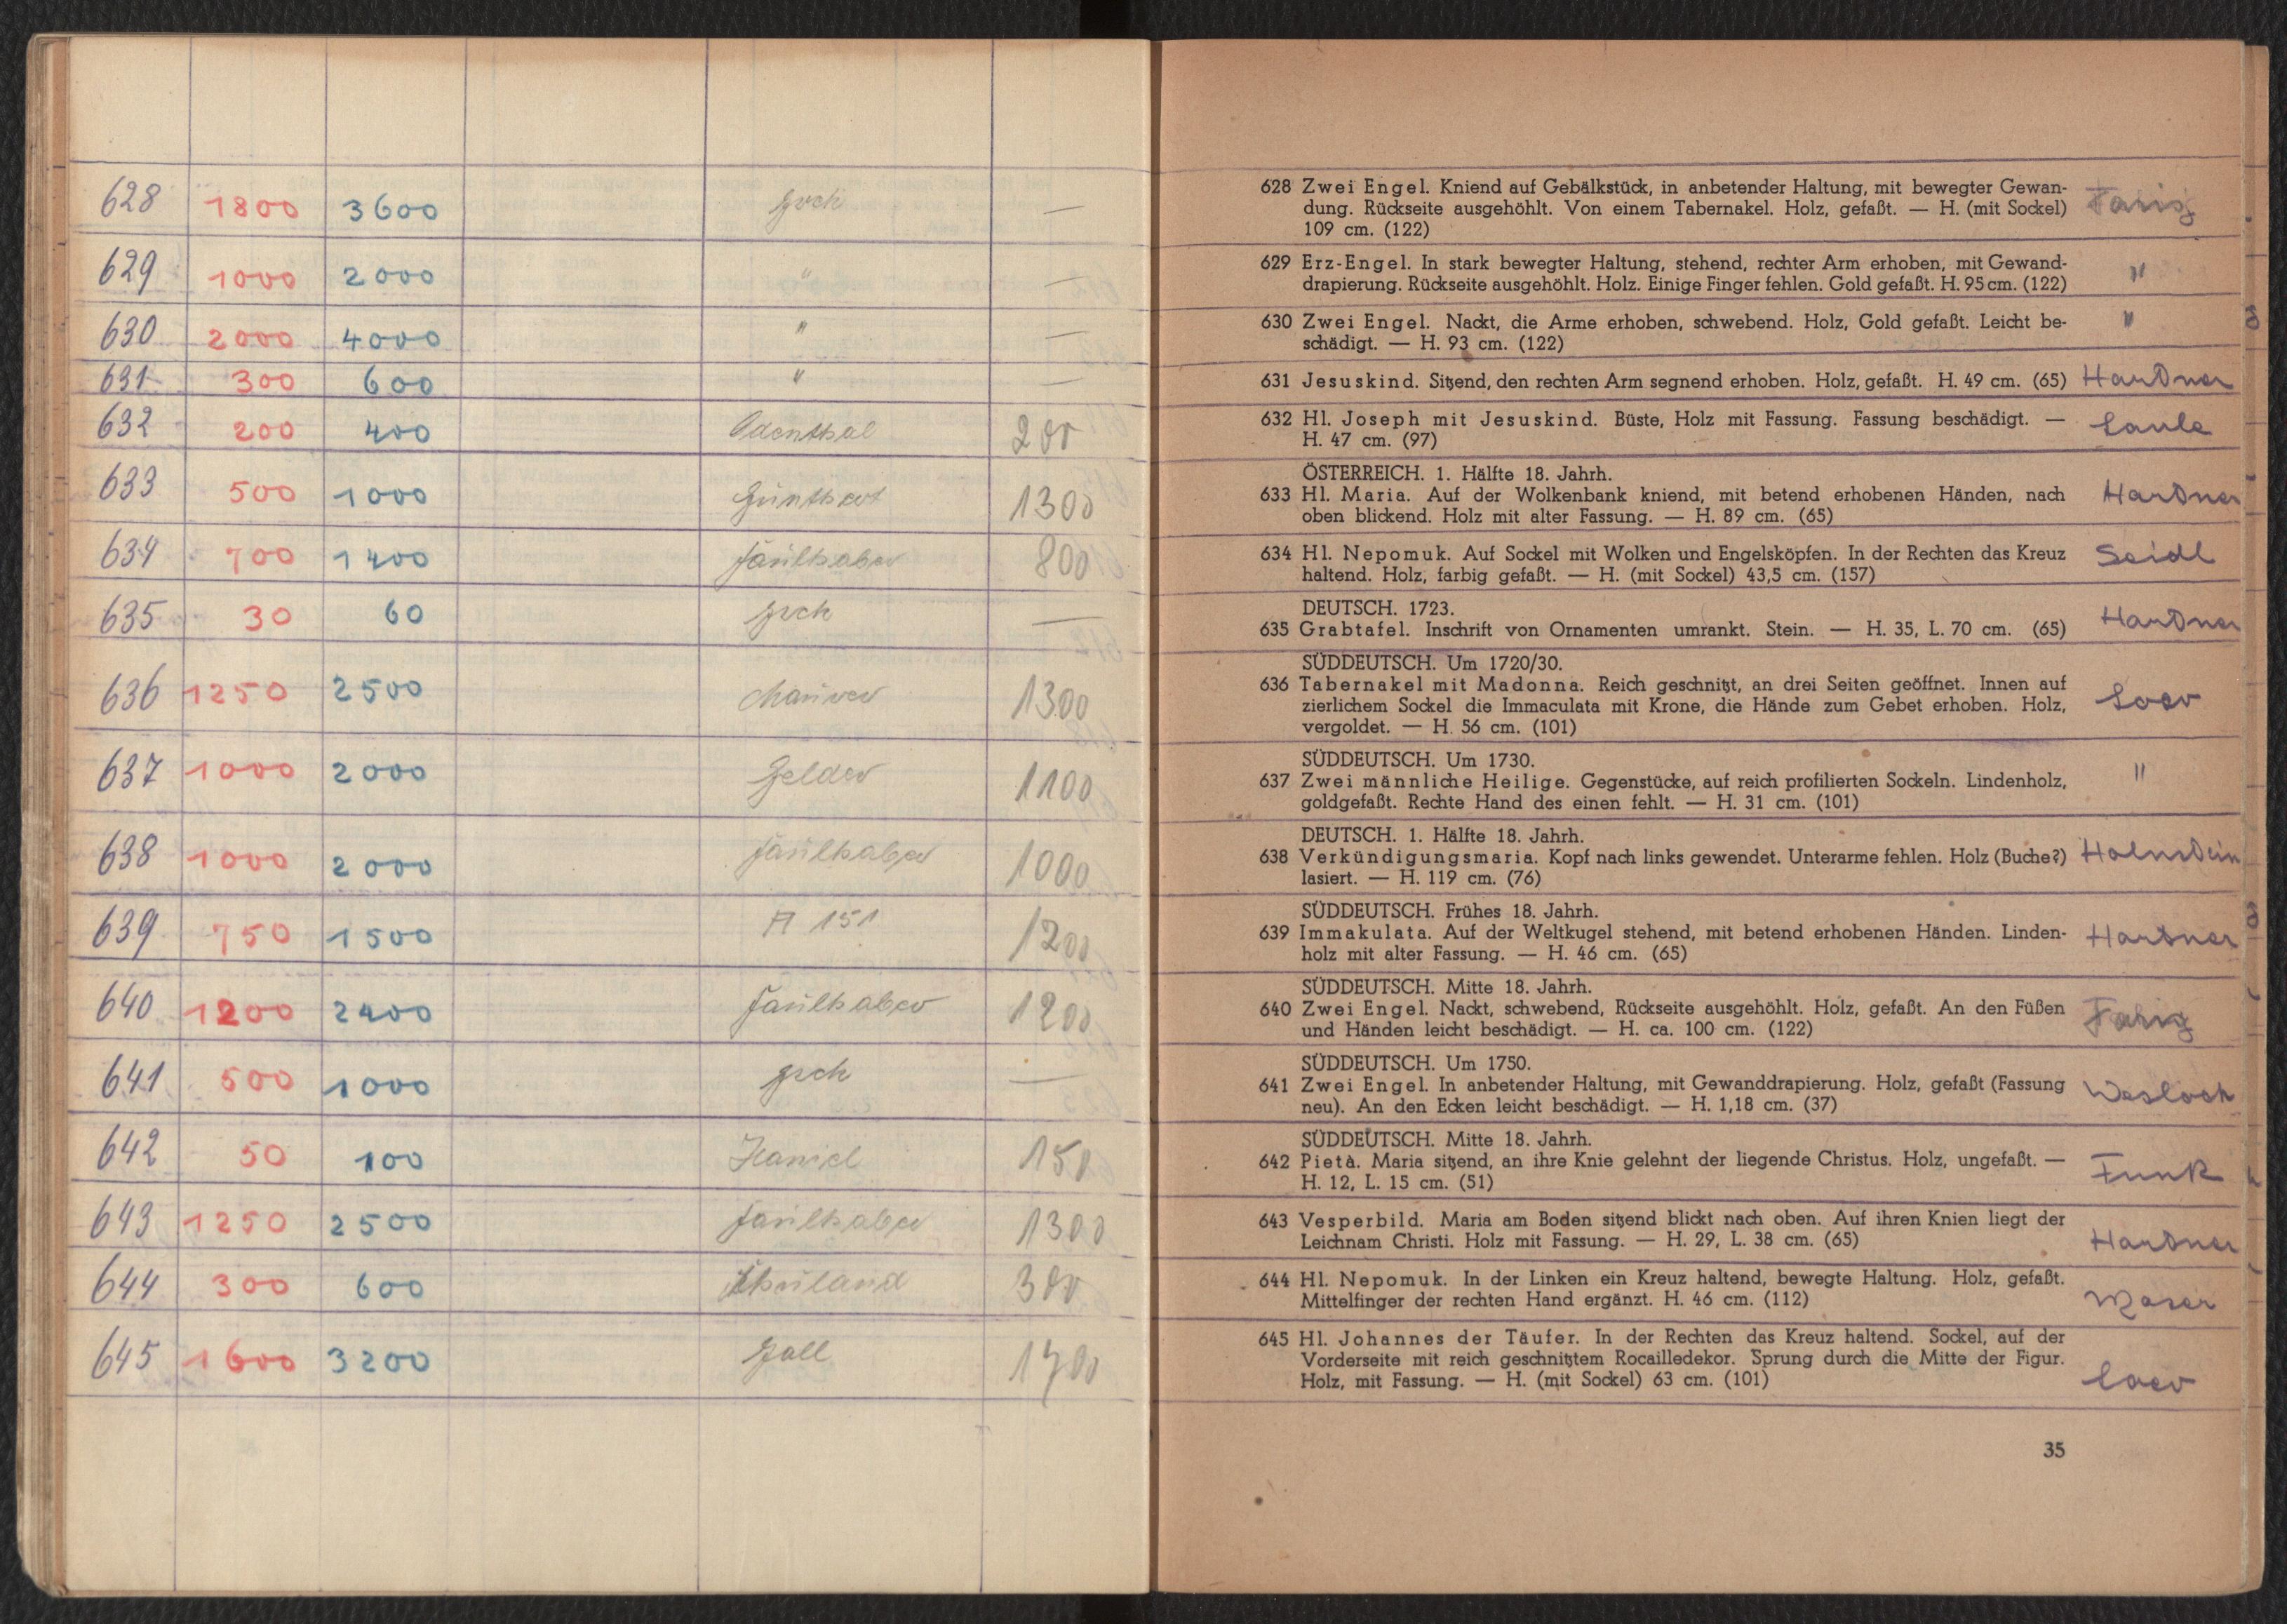 628 1800 3600 —
629 1000 2000 " —
630 2000 4000 " —
631 300 600 " —
632 200 400 Odenthal 200
633 500 1000 Günthert 1300
634 700 1400 Faulhaber 800
635 30 60 —
636 1250 2500 1300
637 1000 2000 Gelder 1100
638 1000 2000 Faulhaber 1000
639 750 1500 A 151 1200
640 1200 2400 Faulhaber 1200
641 500 1000 —
642 50 100 Haniel 150
643 1250 2500 Faulhaber 1300
644 300 600 300
645 1600 3200 Gall 1700
628 Zwei Engel. Kniend auf Gebälkstück, in anbetender Haltung, mit bewegter Gewan-
dung. Rückseite ausgehöhlt. Von einem Tabernakel. Holz, gefaßt. — H. (mit Sockel)
109 cm. (122)
629 Erz-Engel. In stark bewegter Haltung, stehend, rechter Arm erhoben, mit Gewand-
drapierung. Rückseite ausgehöhlt. Holz. Einige Finger fehlen. Gold gefaßt. H. 95 cm. (122) "
630 Zwei Engel. Nackt, die Arme erhoben, schwebend. Holz, Gold gefaßt. Leicht be- "
schädigt. — H. 93 cm. (122)
631 Jesuskind. Sitzend, den rechten Arm segnend erhoben. Holz, gefaßt. H. 49 cm. (65) Hartner
632 Hl. Joseph mit Jesuskind. Büste, Holz mit Fassung. Fassung beschädigt. — Laule
H. 47 cm. (97)
ÖSTERREICH. 1. Hälfte 18. Jahrh.
633 Hl. Maria. Auf der Wolkenbank kniend, mit betend erhobenen Händen, nach Hartner
oben blickend. Holz mit alter Fassung. — H. 89 cm. (65)
634 Hl. Nepomuk. Auf Sockel mit Wolken und Engelsköpfen. In der Rechten das Kreuz Seidl
haltend. Holz, farbig gefaßt. — H. (mit Sockel) 43,5 cm. (157)
DEUTSCH. 1723. Hartner
635 Grabtafel. Inschrift von Ornamenten umrankt. Stein. — H. 35, L. 70 cm. (65)
SÜDDEUTSCH. Um 1720/30.
636 Tabernakel mit Madonna. Reich geschnitzt, an drei Seiten geöffnet. Innen auf
zierlichem Sockel die Immaculata mit Krone, die Hände zum Gebet erhoben. Holz, Loev
vergoldet. — H. 56 cm. (101)
SÜDDEUTSCH. Um 1730.
637 Zwei männliche Heilige. Gegenstücke, auf reich profilierten Sockeln. Lindenholz, "
goldgefaßt. Rechte Hand des einen fehlt. — H. 31 cm. (101)
DEUTSCH. 1. Hälfte 18. Jahrh.
638 Verkündigungsmaria. Kopf nach links gewendet. Unterarme fehlen. Holz (Buche?)
lasiert. — H. 119 cm. (76)
SÜDDEUTSCH. Frühes 18. Jahrh.
639 Immakulata. Auf der Weltkugel stehend, mit betend erhobenen Händen. Linden- Hartner
holz mit alter Fassung. — H. 46 cm. (65)
SÜDDEUTSCH. Mitte 18. Jahrh.
640 Zwei Engel. Nackt, schwebend, Rückseite ausgehöhlt. Holz, gefaßt. An den Füßen
und Händen leicht beschädigt. — H. ca. 100 cm. (122)
SÜDDEUTSCH. Um 1750.
641 Zwei Engel. In anbetender Haltung, mit Gewanddrapierung. Holz, gefaßt (Fassung Wesloch
neu). An den Ecken leicht beschädigt. — H. 1,18 cm. (37)
SÜDDEUTSCH. Mitte 18. Jahrh.
642 Pietà. Maria sitzend, an ihre Knie gelehnt der liegende Christus. Holz, ungefaßt. — Funk
H. 12, L. 15 cm. (51)
643 Vesperbild. Maria am Boden sitzend blickt nach oben. Auf ihren Knien liegt der
Leichnam Christi. Holz mit Fassung. — H. 29, L. 38 cm. (65) Hartner
644 Hl. Nepomuk. In der Linken ein Kreuz haltend, bewegte Haltung. Holz, gefaßt.
Mittelfinger der rechten Hand ergänzt. H. 46 cm. (112) Maser
645 Hl. Johannes der Täufer. In der Rechten das Kreuz haltend. Sockel, auf der
Vorderseite mit reich geschnitztem Rocailledekor. Sprung durch die Mitte der Figur.
Holz, mit Fassung. — H. (mit Sockel) 63 cm. (101) Loev
35